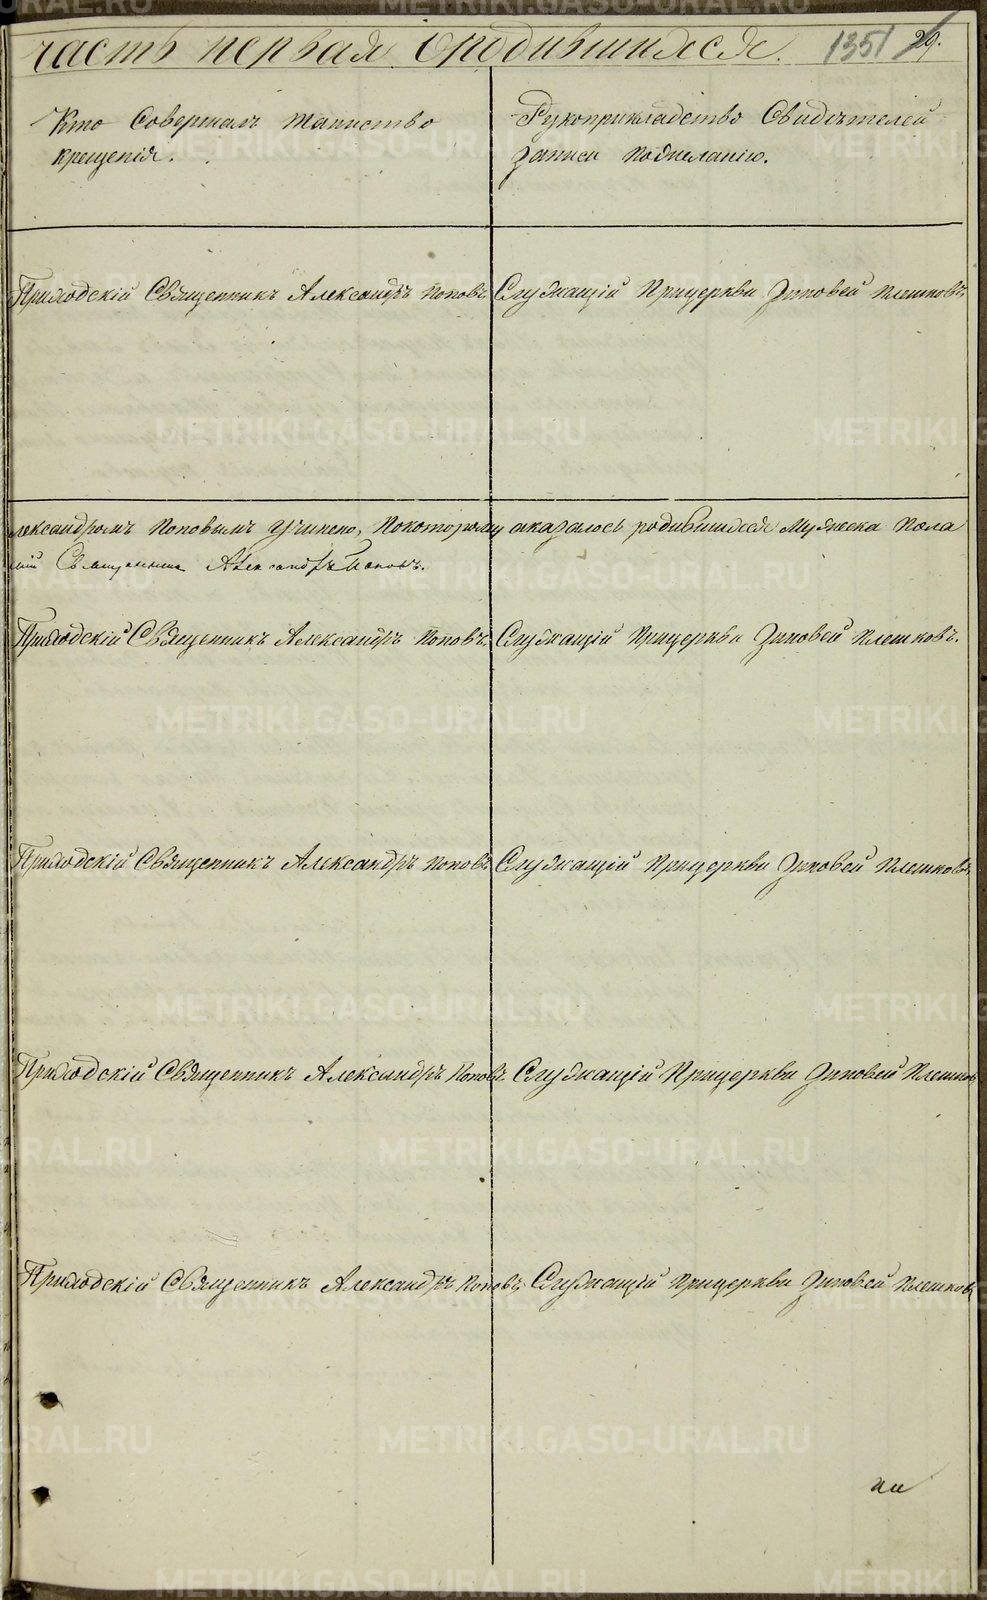 часть первая о родившихся. 1351 29.
Кто Совершалъ таинство
крещенія.
Рукоприкладство Свидѣтелей
записи пожеланію.
Приходскій Священникъ Александръ Поповъ. Служащій Прицеркви Зиновей Плешковъ.
лександромъ Поповымъ Учинено, Покоторому оказалось родившихся Мужеска Пола
Священникъ Александръ Поповъ.
Приходскій Священникъ Александръ Поповъ. Служащій Прицеркви Зиновей Плешковъ.
Приходскій Священникъ Александръ Поповъ Служащій Прицеркви Зиновей Плешковъ
Приходскій Священникъ Александръ Поповъ Служащій Прицеркви Зиновей Плешковъ
Приходскій Священникъ Александръ Поповъ. Служащій Прицеркви Зиновей Плешковъ
METRIKI.GASO-URAL.RU